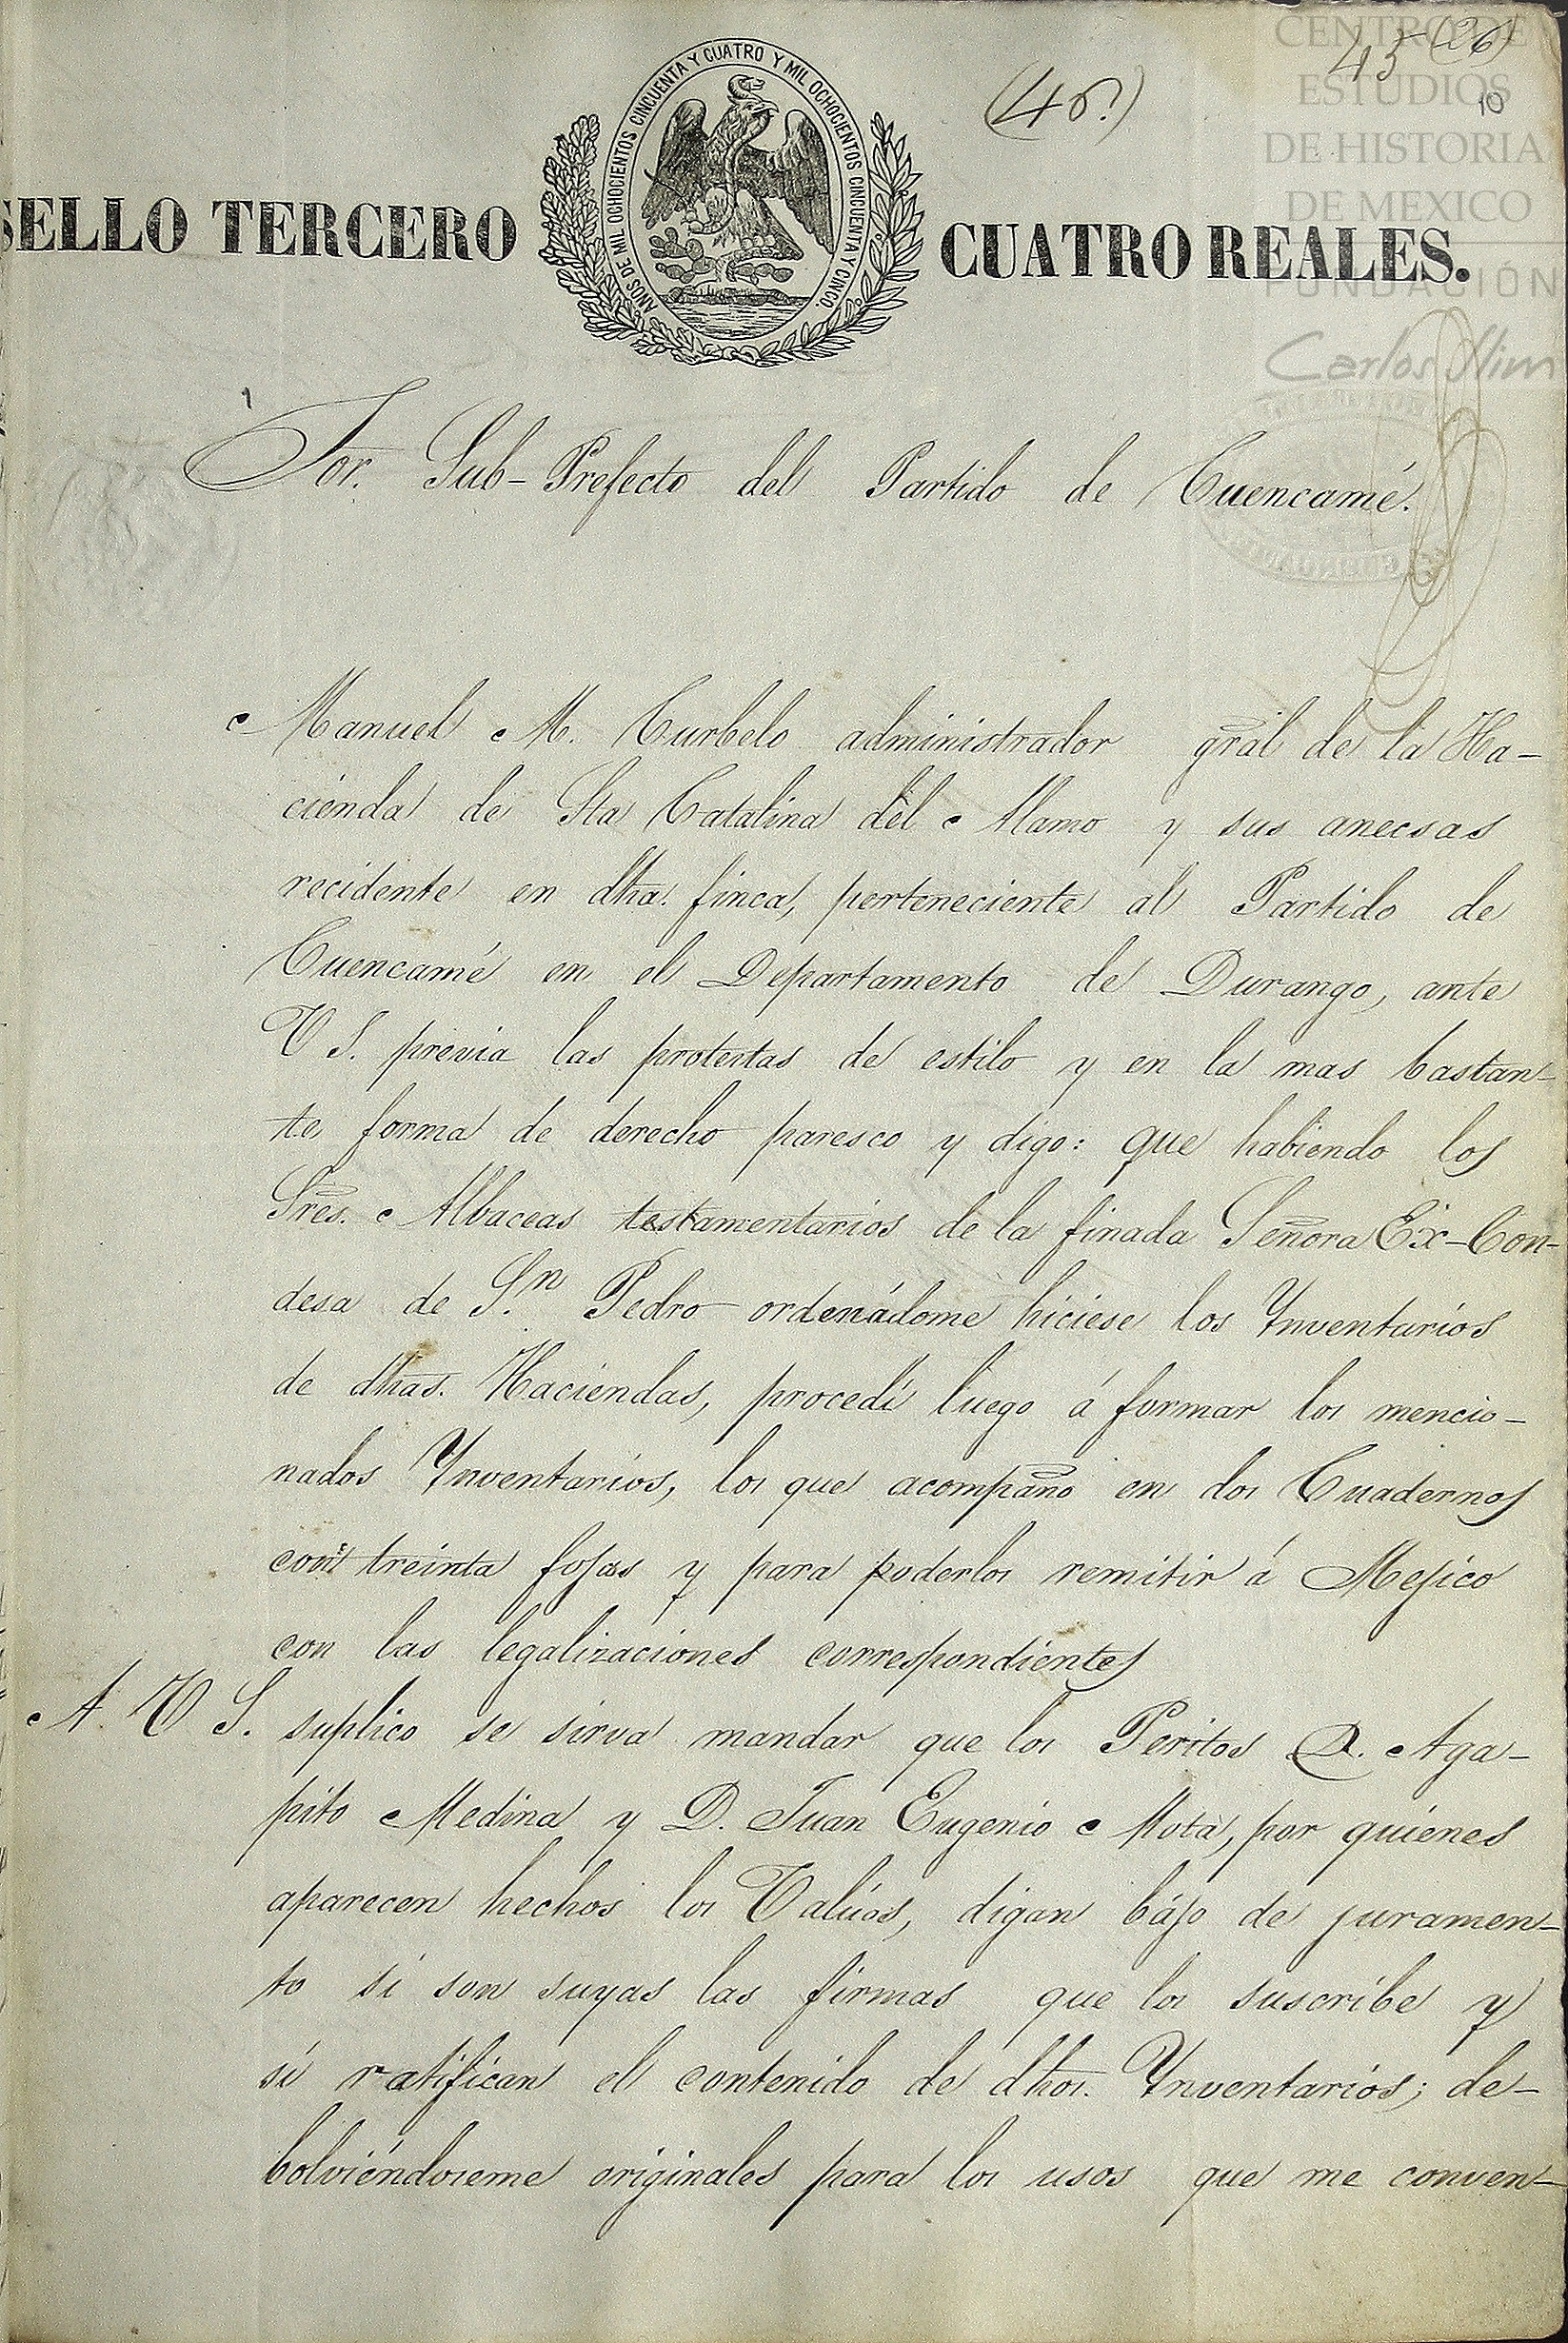 CENTRO DE
ESTUDIOS
DE HISTORIA
DE MEXICO
FUNDACIÓN
Carlos Slim
43 (26)
10
SELLO TERCERO
AÑOS DE MIL OCHOCIENTOS CINCUENTA Y CUATRO Y MIL OCHOCIENTOS CINCUENTA Y CINCO.
CUATRO REALES.
Sor. Sub-Prefecto del Partido de Cuencamé.
Manuel M. Curbelo administrador gral de la Ha-
cienda de Sta Catalina del Alamo y sus anecsas
recidente en dha. finca, perteneciente al Partido de
Cuencamé en el Departamento de Durango, ante
V S. previa las protestas de estilo y en la mas bastan-
te forma de derecho paresco y digo: que habiendo los
Sres. Albaceas testamentarios de la finada Señora Ex-Con-
desa de S.n Pedro ordenádome hiciese los Ynventarios
de dhas. Haciendas, procedí luego á formar los mencio-
nados Ynventarios, los que acompaño en dos Cuadernos
con treinta fojas y para poderlos remitir á Mejico
con las legalizaciones correspondientes
A. V S. suplico se sirva mandar que los Peritos D. Aga-
pito Medina y D. Juan Eugenio Mota, por quienes
aparecen hechos los Valúos, digan bájo de juramen-
to si son suyas las firmas que los suscribe y
si ratifican el contenido de dhos. Ynventarios; de-
bolviéndoseme originales para los usos que me conven-